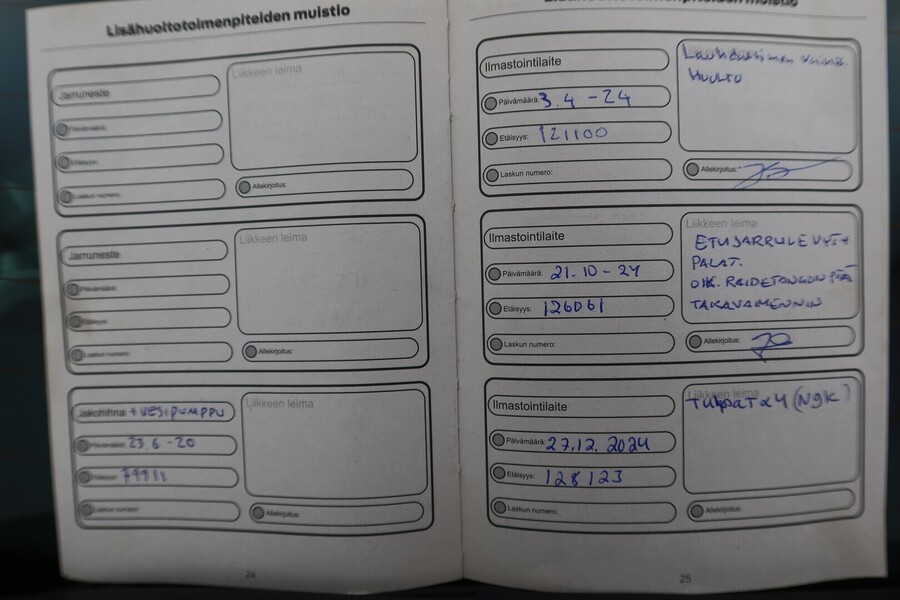 Lisähuoltotoimenpiteiden muistio
Jarruneste
Liikkeen leima
Päivämäärä:
Etäisyys:
Laskun numero:
Allekirjoitus:
Jarruneste
Liikkeen leima
Päivämäärä:
Etäisyys:
Laskun numero:
Allekirjoitus:
Jakohihna: + VESIPUMPPU
Liikkeen leima
Päivämäärä: 23.6 -20
Etäisyys:
Laskun numero:
Allekirjoitus:
24
Lisähuoltotoimenpiteiden muistio
Ilmastointilaite
Päivämäärä: 3.4 -24
Etäisyys: 121100
Laskun numero:
HUOLTO
Allekirjoitus:
Ilmastointilaite
Päivämäärä: 21.10 -24
Etäisyys: 126061
Laskun numero:
Liikkeen leima
ETUJARRULEVYT+
PALAT.
OIK. RAIDETANGON PÄÄ
TAKAVAIMENNIN
Allekirjoitus:
Ilmastointilaite
Päivämäärä: 27.12.2024
Etäisyys: 128123
Laskun numero:
Liikkeen leima
Tulpat x4 (NGK)
Allekirjoitus:
25